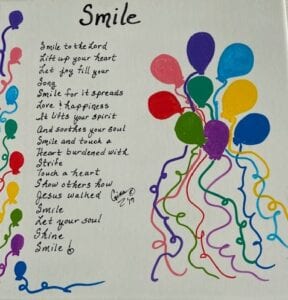 Smile
Smile to the Lord
Lift up your heart
Let joy fill your
Song
Smile for it spreads
Love & happiness
It lifts your spirit
And soothes your soul
Smile and touch a
Heart burdened with
Strife
Touch a heart
Show others how
Jesus walked
Smile
Let your soul
Shine
Smile